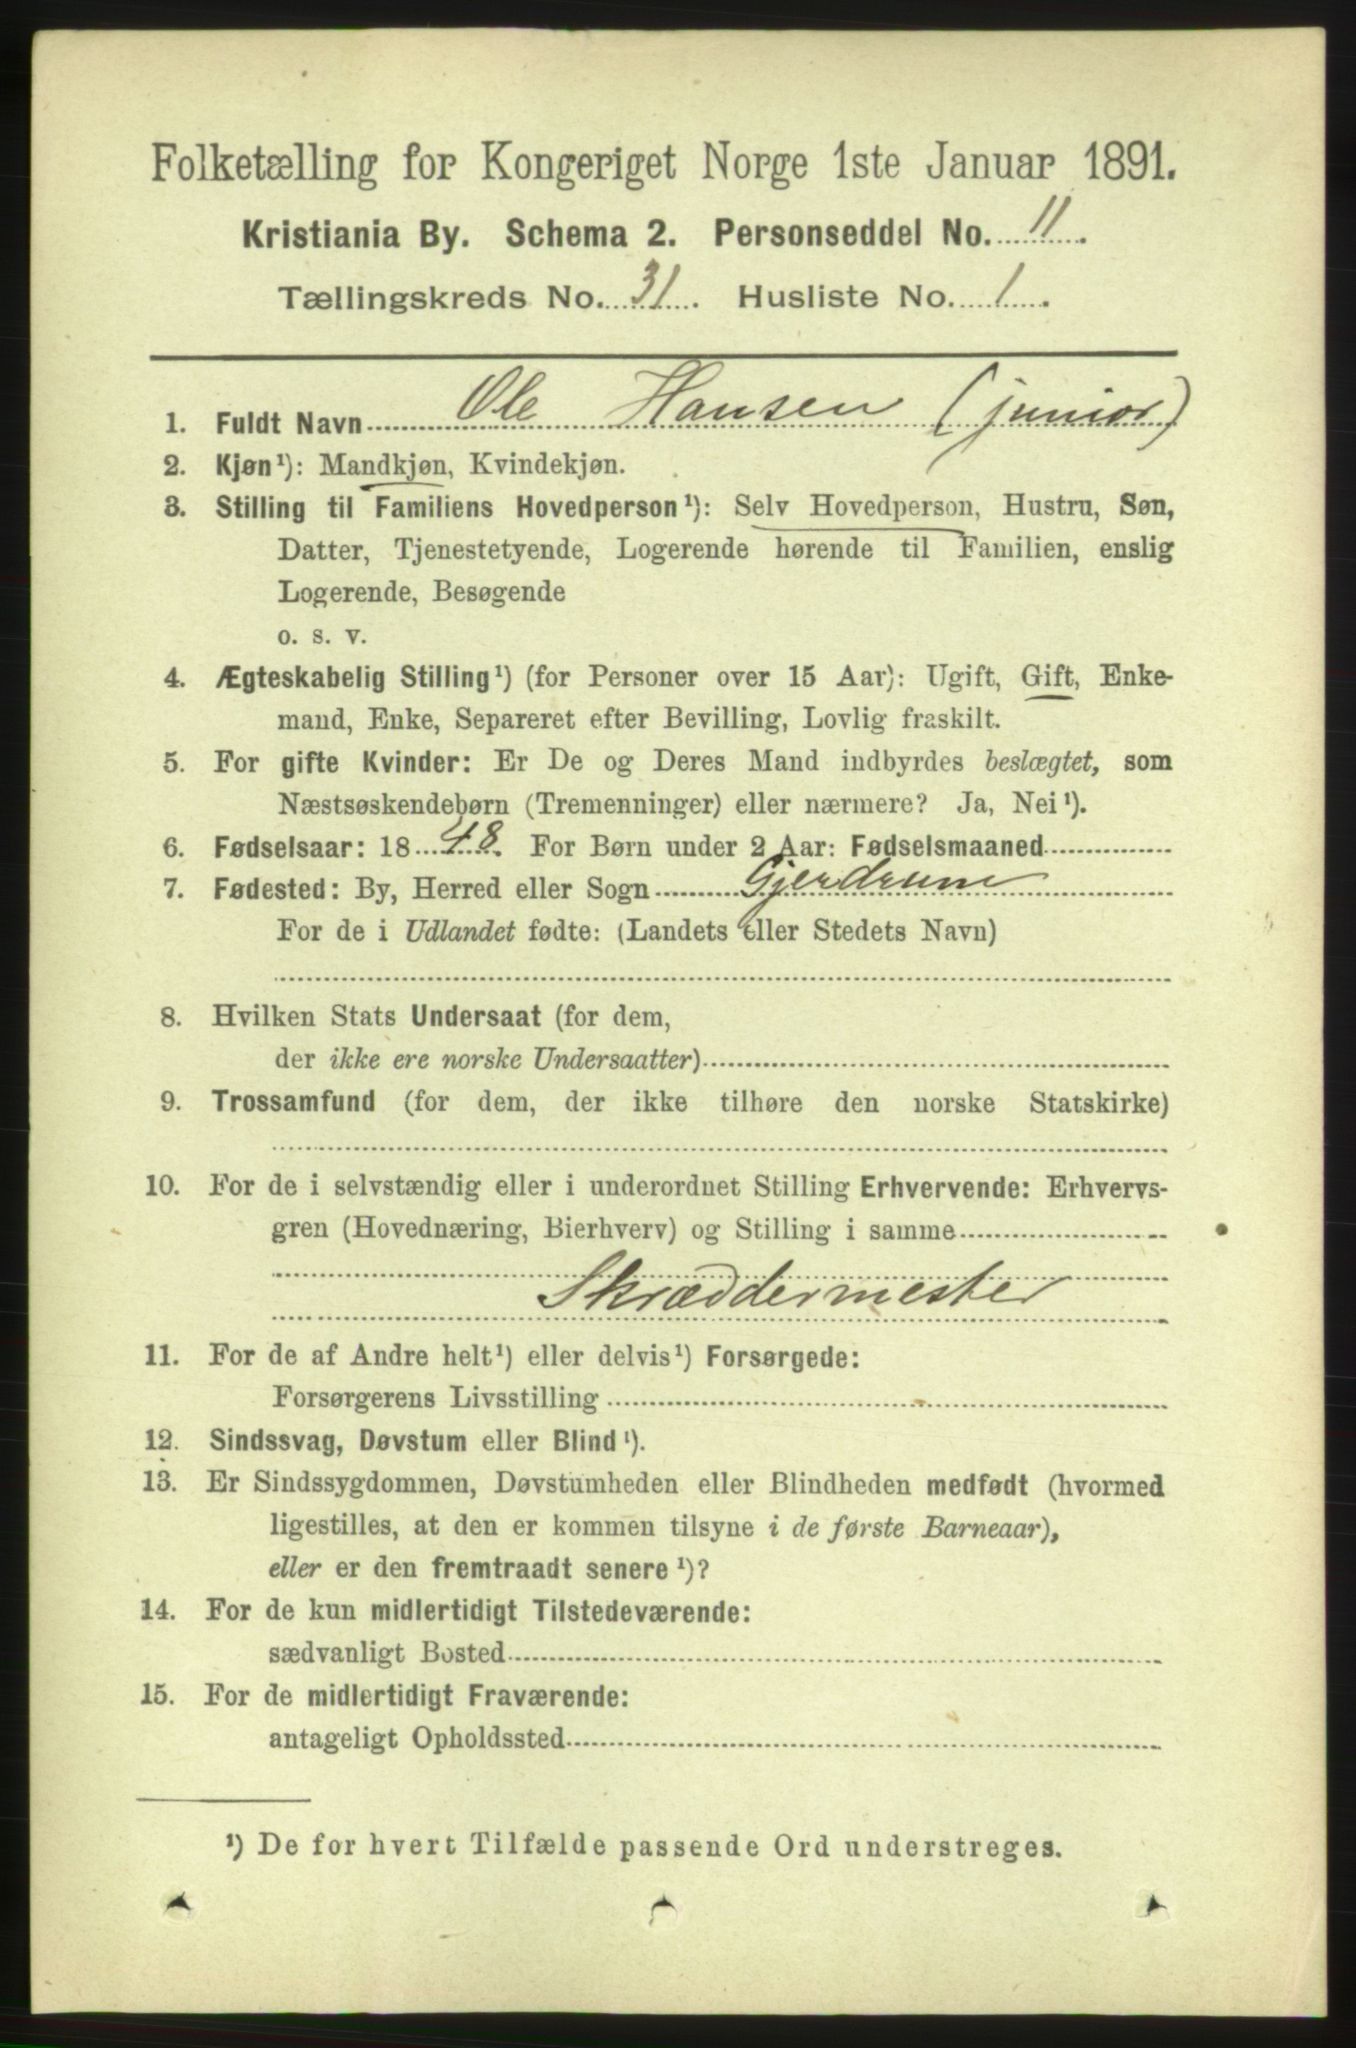 Folketælling for Kongeriget Norge 1ste Januar 1891.
Kristiania By. Schema 2. Personseddel No. 11.
Tællingskreds No. 31. Husliste No. 1.
1. Fuldt Navn Ole Hansen (junior)
2. Kjøn¹): Mandkjøn, Kvindekjøn.
3. Stilling til Familiens Hovedperson¹): Selv Hovedperson, Hustru, Søn,
Datter, Tjenestetyende, Logerende hørende til Familien, enslig
Logerende, Besøgende
o. s. v.
4. Ægteskabelig Stilling¹) (for Personer over 15 Aar): Ugift, Gift, Enke-
mand, Enke, Separeret efter Bevilling, Lovlig fraskilt.
5. For gifte Kvinder: Er De og Deres Mand indbyrdes beslægtet, som
Næstsøskendebørn (Tremenninger) eller nærmere? Ja, Nei¹).
6. Fødselsaar: 1848. For Børn under 2 Aar: Fødselsmaaned
7. Fødested: By, Herred eller Sogn Gjerdrum
For de i Udlandet fødte: (Landets eller Stedets Navn)
8. Hvilken Stats Undersaat (for dem,
der ikke ere norske Undersaatter)
9. Trossamfund (for dem, der ikke tilhøre den norske Statskirke)
10. For de i selvstændig eller i underordnet Stilling Erhvervende: Erhvervs-
gren (Hovednæring, Bierhverv) og Stilling i samme
Skræddermester
11. For de af Andre helt¹) eller delvis¹) Forsørgede:
Forsørgerens Livsstilling
12. Sindssvag, Døvstum eller Blind¹).
13. Er Sindssygdommen, Døvstumheden eller Blindheden medfødt (hvormed
ligestilles, at den er kommen tilsyne i de første Barneaar),
eller er den fremtraadt senere¹)?
14. For de kun midlertidigt Tilstedeværende:
sædvanligt Bosted
15. For de midlertidigt Fraværende:
antageligt Opholdssted
¹) De for hvert Tilfælde passende Ord understreges.